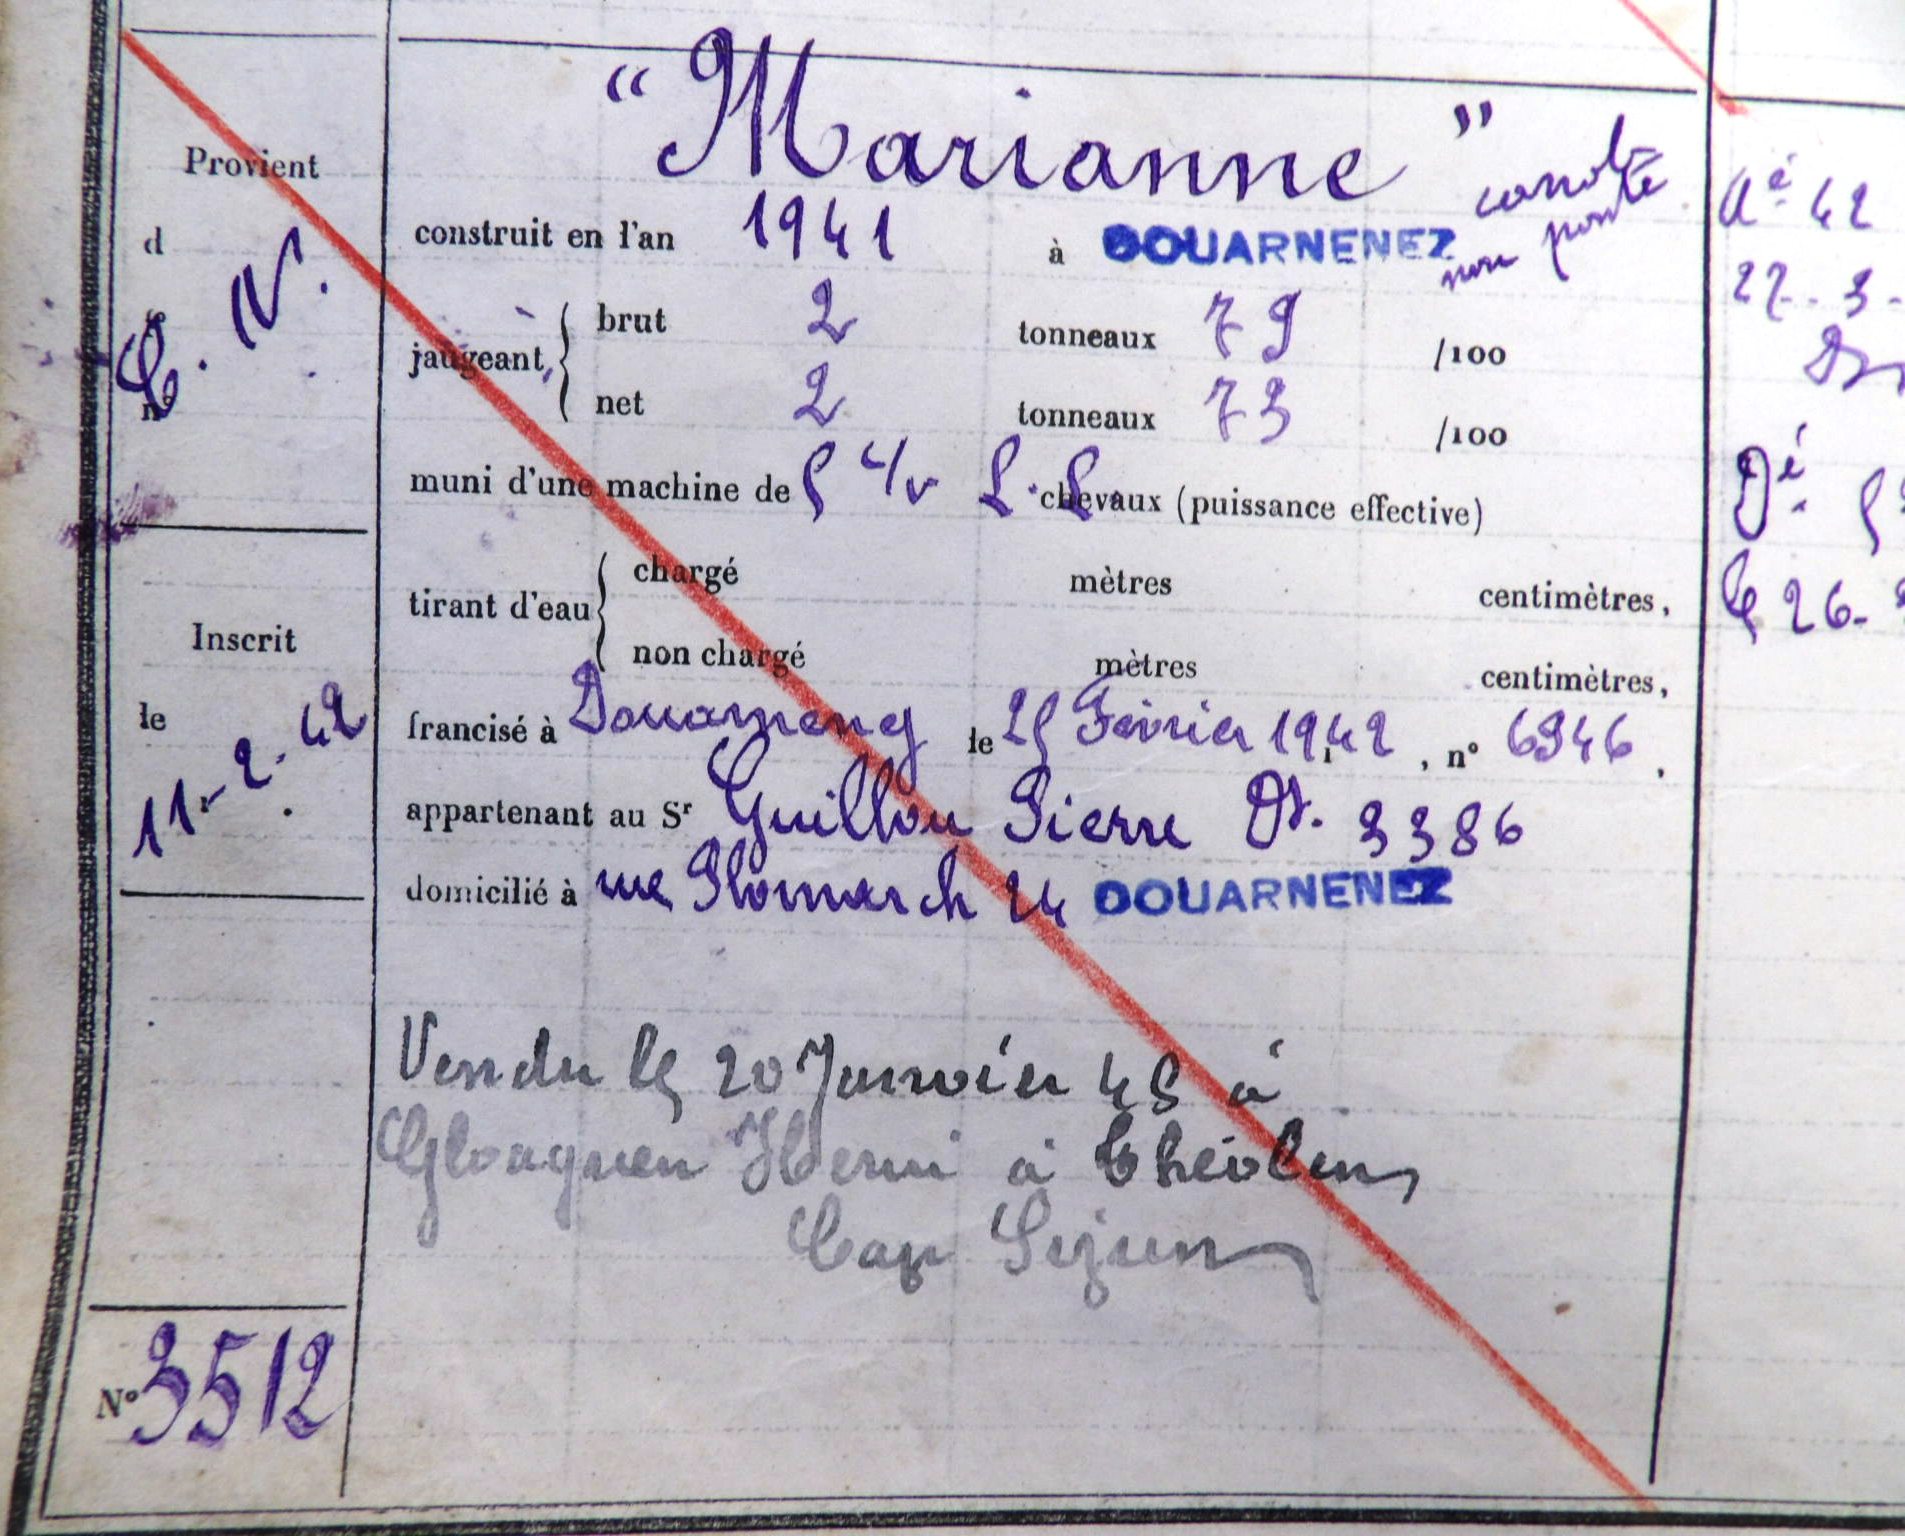 "Marianne"
canot
non ponté
Provient
d
C. N.
n°
construit en l'an 1941 à DOUARNENEZ
jaugeant, brut 2 tonneaux 79 /100
net 2 tonneaux 73 /100
muni d'une machine de 5 c/v L. L. chevaux (puissance effective)
tirant d'eau chargé mètres centimètres,
non chargé mètres centimètres,
Inscrit
le 11-2-42
francisé à Douarnenez le 25 Février 1942, n° 6946,
appartenant au Sr Guillou Pierre Dz. 3386
domicilié à rue Plomarch 24 DOUARNENEZ
Vendu le 20 Janvier 45 à
Gloaguen Henri à Théolen
Cap Sizun
N° 3512
Aé 42
27. 3.
Dz
Dé 5
le 26-